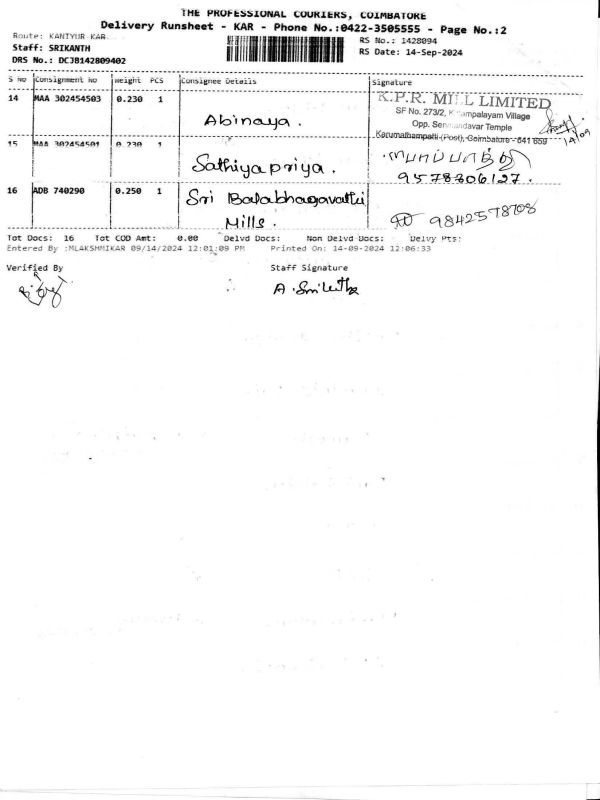 THE PROFESSIONAL COURIERS, COIMBATORE
Delivery Runsheet - KAR - Phone No.:0422-3505555 - Page No.:2
Route: KANIYUR KAR
RS No.: 1428094
Staff: SRIKANTH
RS Date: 14-Sep-2024
DRS No.: DCJB142809402
S No Consignment No Weight PCS Consignee Details Signature
14 MAA 302454503 0.230 1 Abinaya.
K.P.R. MILL LIMITED
SF No. 273/2, Village
Opp. Temple
Karumathampatti (Post), Coimbatore - 641 659
14/09
15 MAA 302454501 0.230 1 Sathiyapriya.
9578306127.
16 ADB 740290 0.250 1 Sri Balabhagavathi
Mills.
9842578708
Tot Docs: 16 Tot COD Amt: 0.00 Delvd Docs: Non Delvd Docs: Delvy Pts:
Entered By :MLAKSHMIKAR 09/14/2024 12:01:09 PM Printed On: 14-09-2024 12:06:33
Verified By Staff Signature